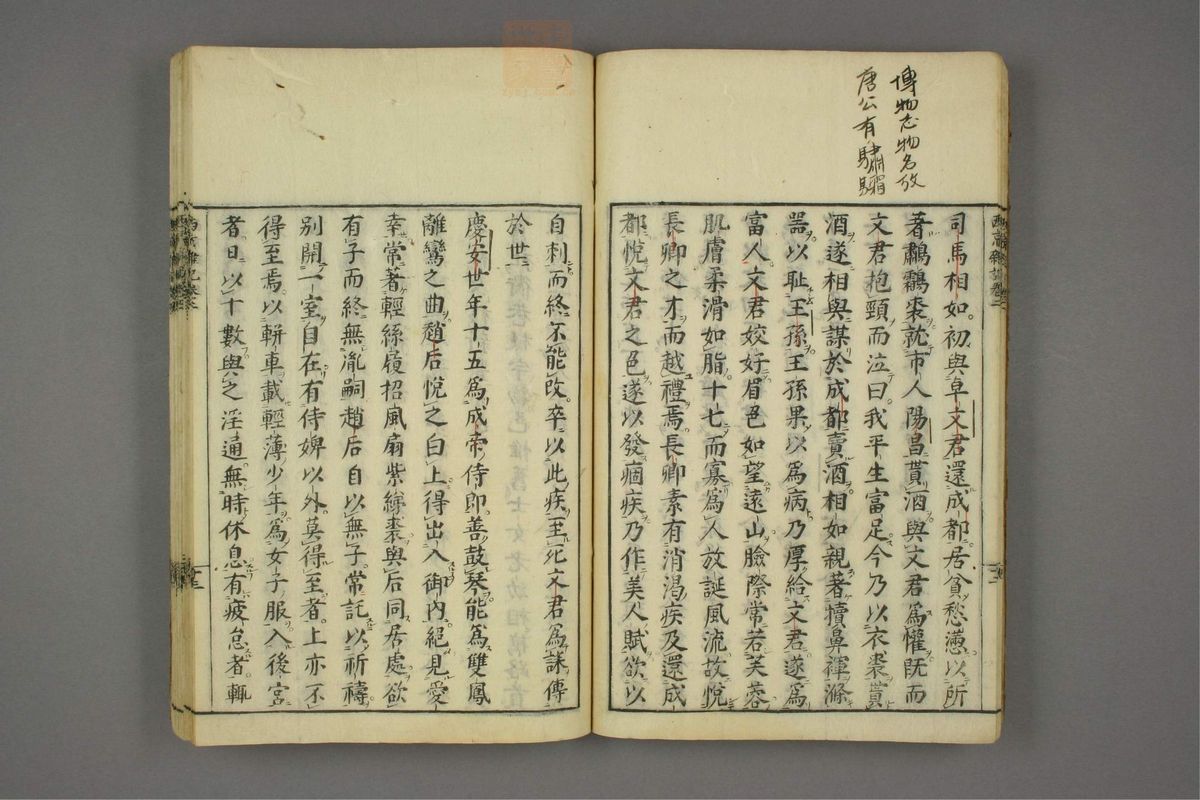 博物志物名攷
唐公有驌騻
司馬相如初與卓文君還成都居貧愁懣以所
著鷫鸘裘就市人陽昌貰酒與文君爲懽既而
文君抱頸而泣曰我平生富足今乃以衣裘貰
酒遂相與謀於成都賣酒相如親著犢鼻褌滌
器以耻王孫王孫果以爲病乃厚給文君遂爲
富人文君姣好眉色如望遠山臉際常若芙蓉
肌膚柔滑如脂十七而寡爲人放誕風流故悅
長卿之才而越禮焉長卿素有消渴疾及還成
都悅文君之色遂以發痼疾乃作美人賦欲以
自刺而終不能改卒以此疾至死文君爲誄傳
於世
慶安世年十五爲成帝侍郎善鼓琴能爲雙鳳
離鸞之曲趙后悅之白上得出入御內絕見愛
幸常著輕絲履招風扇紫綈裘與后同居處欲
有子而終無胤嗣趙后自以無子常託以祈禱
別開一室自在有侍婢以外莫得至者上亦不
得至焉以輧車載輕薄少年爲女子服入後宮
者日以十數與之淫通無時休息有疲怠者輒